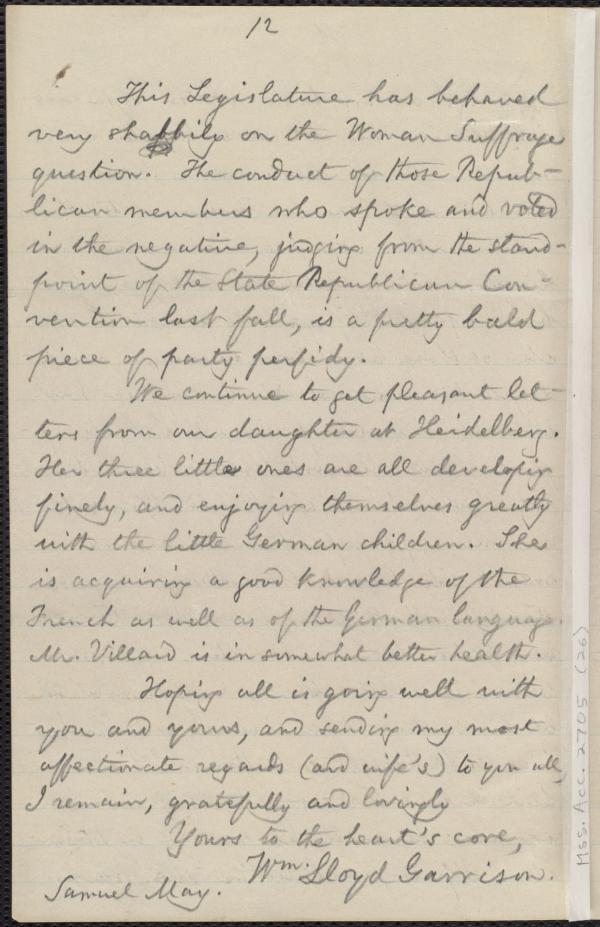 12
This Legislature has behaved
very shabbily on the Woman Suffrage
question. The conduct of those Repub-
lican members who spoke and voted
in the negative, judging from the stand-
point of the State Republican Con-
vention last fall, is a pretty bald
piece of party perfidy.
We continue to get pleasant let-
ters from our daughter at Heidelberg.
Her three little ones are all developing
finely, and enjoying themselves greatly
with the little German children. She
is acquiring a good knowledge of the
French as well as of the German language.
Mr. Villard is in somewhat better health.
Hoping all is going well with
you and yours, and sending my most
affectionate regards (and wife's) to you all,
I remain, gratefully and lovingly
Yours to the heart's core,
Wm. Lloyd Garrison.
Samuel May.
Mss. Acc. 2705 (26)